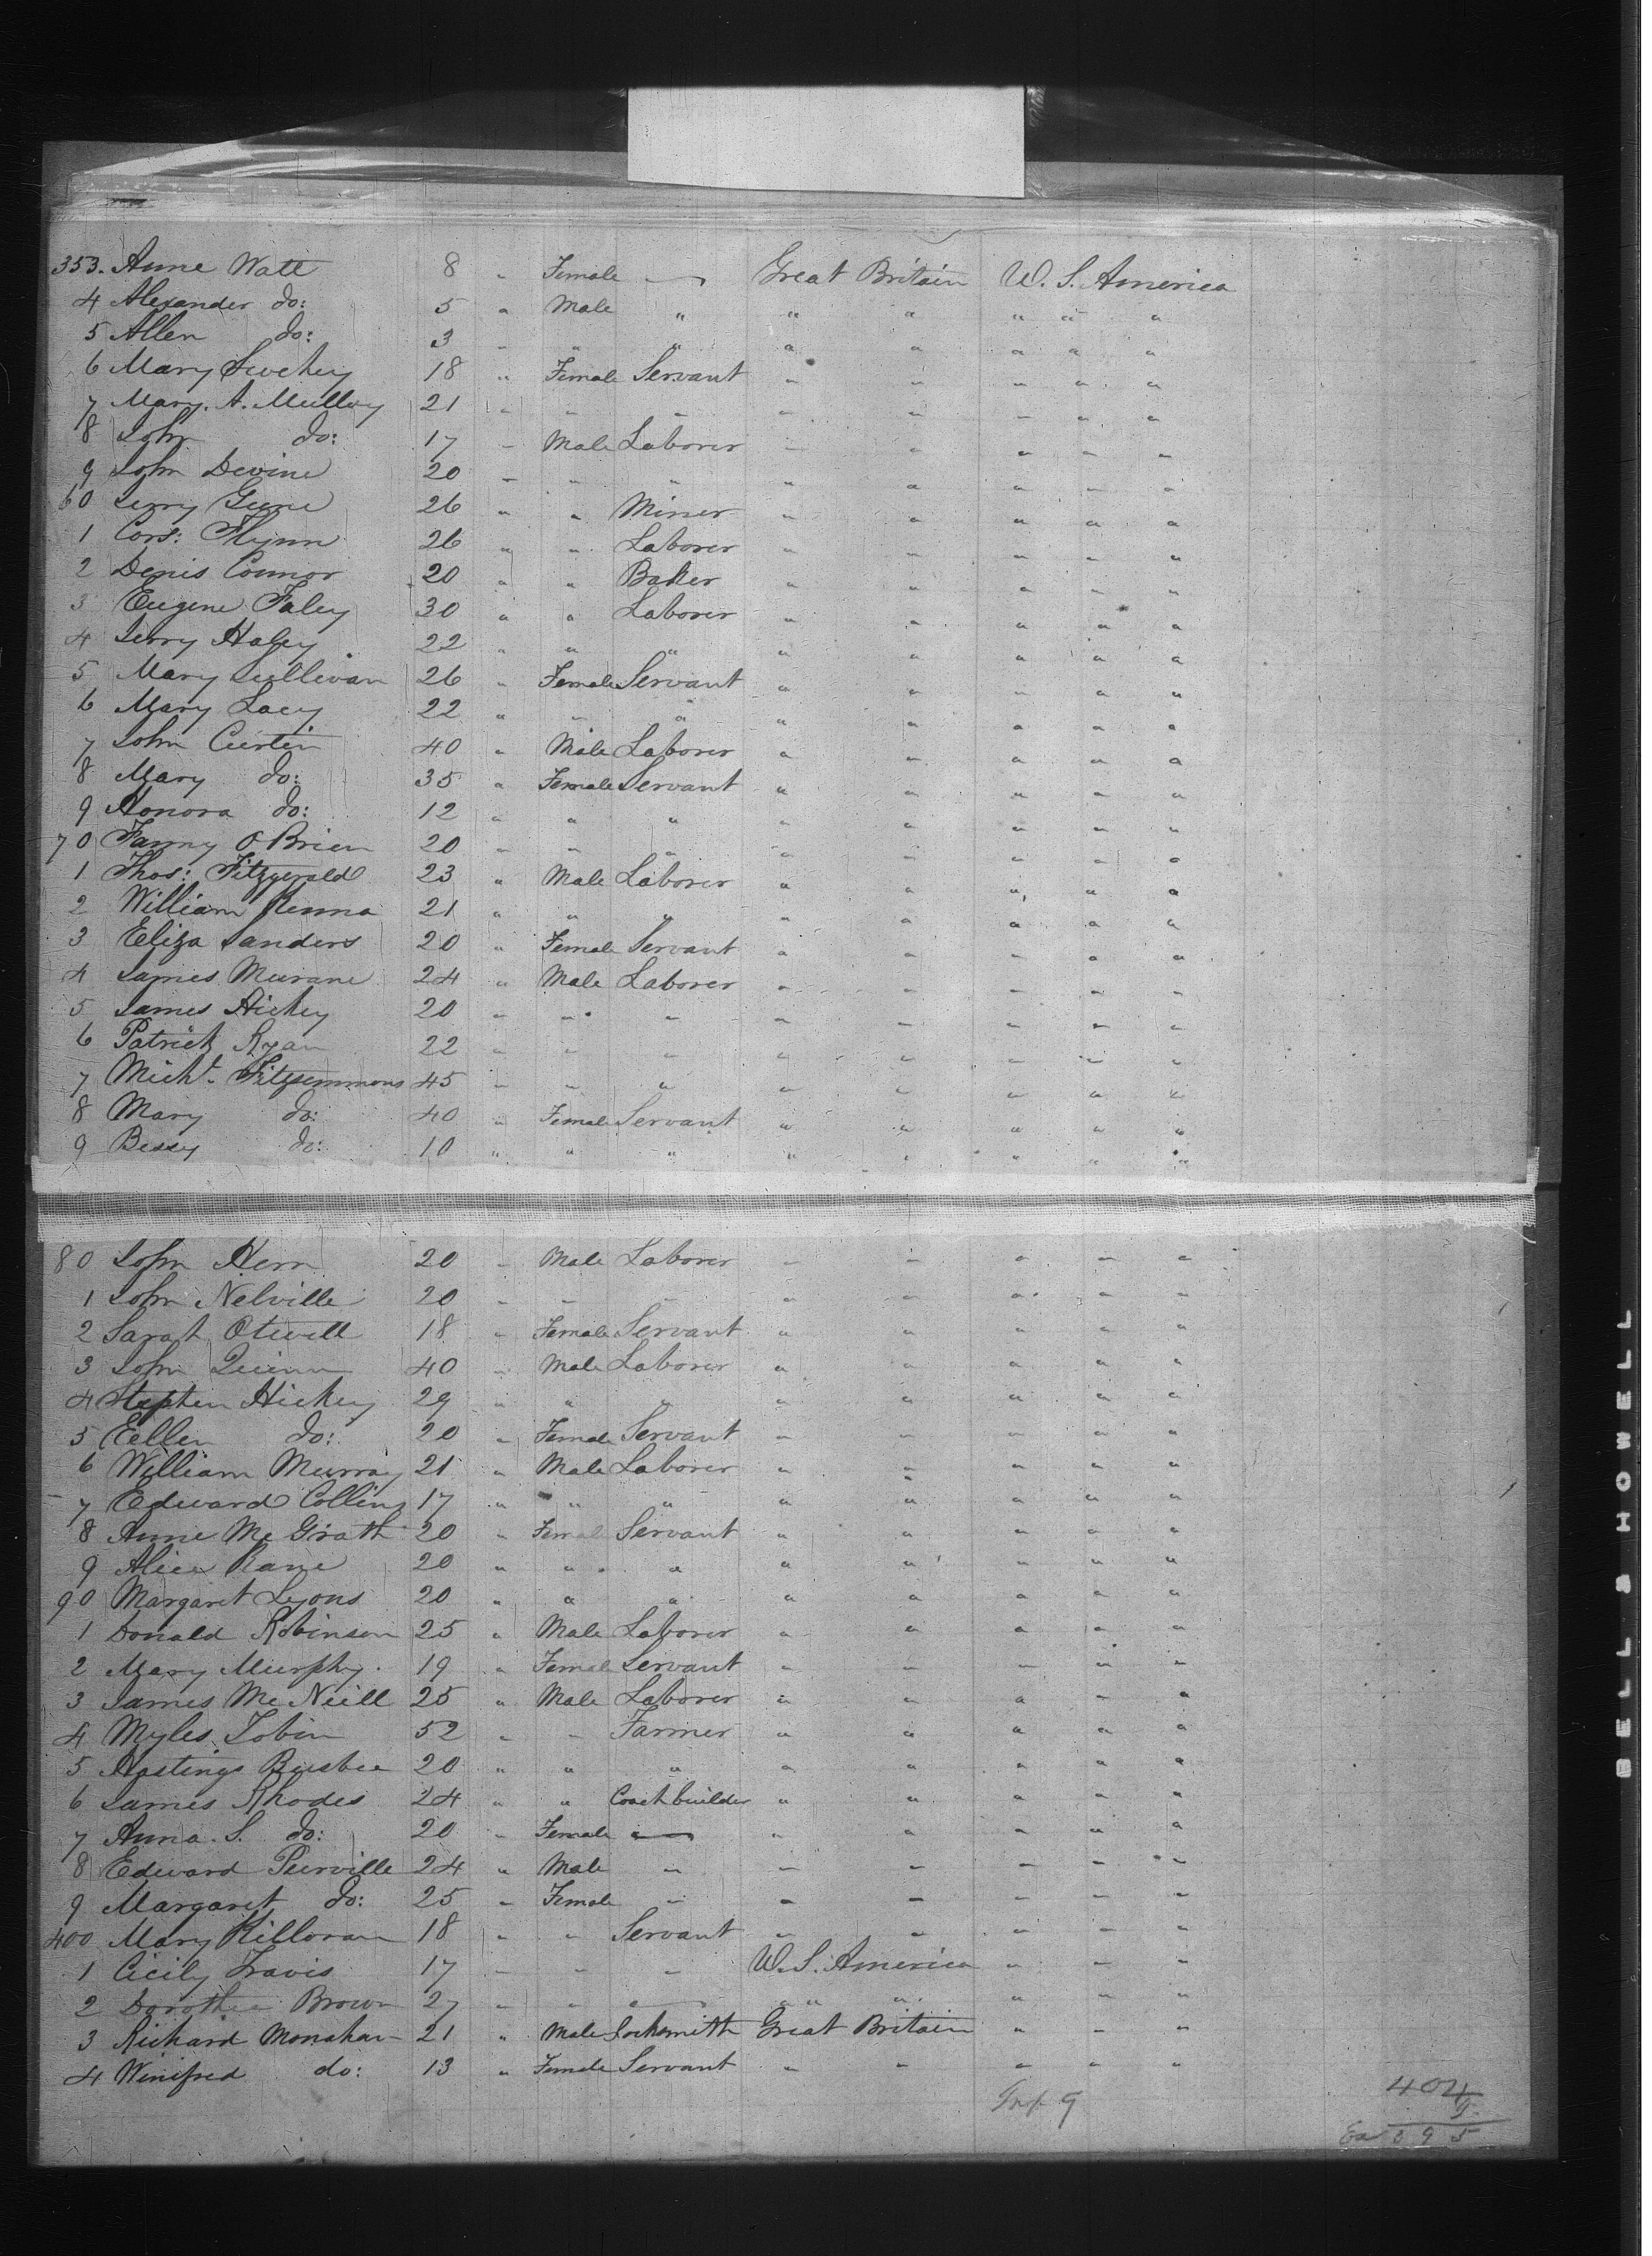 353. Anne Watt 8 " Female — Great Britain U.S. America
4 Alexander do: 5 " Male " " " " " "
5 Allen do: 3 " " " " " " " "
6 Mary 18 " Female Servant " " " " "
7 Mary. A. Mulloy 21 " " " " " " " "
8 John do: 17 " Male Laborer " " " " "
9 John Devine 20 " " " " " " " "
60 Jerry 26 " " Miner " " " " "
1 Cors: Flynn 26 " " Laborer " " " " "
2 Denis Connor 20 " " Baker " " " " "
3 Eugene Faley 30 " " Laborer " " " " "
4 Jerry Haley 22 " " " " " " " "
5 Mary Sullivan 26 " Female Servant " " " " "
6 Mary Lacy 22 " " " " " " " "
7 John Curtin 40 " Male Laborer " " " " "
8 Mary do: 35 " Female Servant " " " " "
9 Honora do: 12 " " " " " " " "
70 Fanny O Brien 20 " " " " " " " "
1 Thos: Fitzgerald 23 " Male Laborer " " " " "
2 William Kenna 21 " " " " " " " "
3 Eliza Sanders 20 " Female Servant " " " " "
4 James Murane 24 " Male Laborer " " " " "
5 James Hickey 20 " " " " " " " "
6 Patrick Ryan 22 " " " " " " " "
7 Michl. Fitzsimmons 45 " " " " " " " "
8 Mary do: 40 " Female Servant " " " " "
9 Bessy do: 10 " " " " " " " "
80 John Kern 20 " Male Laborer " " " " "
1 John Nelville 20 " " " " " " " "
2 Sarah Otwell 18 " Female Servant " " " " "
3 John Quinn 40 " Male Laborer " " " " "
4 Stephen Hickey 29 " " " " " " " "
5 Eellen do: 20 " Female Servant " " " " "
6 William Murray 21 " Male Laborer " " " " "
7 Edward Collins 17 " " " " " " " "
8 Anne Mc Grath 20 " Female Servant " " " " "
9 Alice Kane 20 " " " " " " " "
90 Margaret Lyons 20 " " " " " " " "
1 Donald Robinson 25 " Male Laborer " " " " "
2 Mary Murphy. 19 " Female Servant " " " " "
3 James Mc Neill 25 " Male Laborer " " " " "
4 Myles Tobin 52 " " Farmer " " " " "
5 Hastings Busbee 20 " " " " " " " "
6 James Rhodes 24 " " Coachbuilder " " " " "
7 Anna. S. do: 20 " Female — " " " " "
8 Edward Purville 24 " Male " " " " " "
9 Margaret do: 25 " Female " " " " " "
400 Mary Killoran 18 " " Servant " " " " "
1 Cicily Travis 17 " " " U.S. America " " "
2 Dorothea Brown 27 " " — " " " " " "
3 Richard Monahan 21 " Male Locksmith Great Britain " " "
4 Winifred do: 13 " Female Servant " " " " "
Inf. 9
404
9
395
BELL & HOWELL